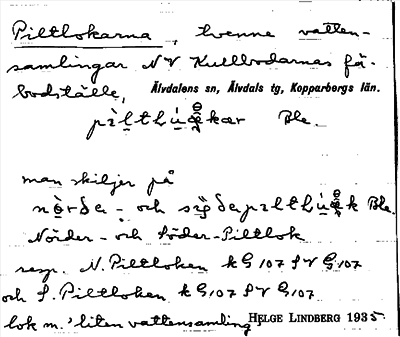 Piltlokarna, tvenne vatten-
samlingar NV Kullbodarnas fä-
bodställe, Älvdalens sn, Älvdals tg, Kopparbergs län.
Ble.
man skiljer på
och Ble.
Nörder- och Söder-Piltlok
resp. N. Piltloken k G 107 f V G 107
och S. Piltloken k G 107 f V G 107
lok m. 'liten vattensamling' HELGE LINDBERG 1935